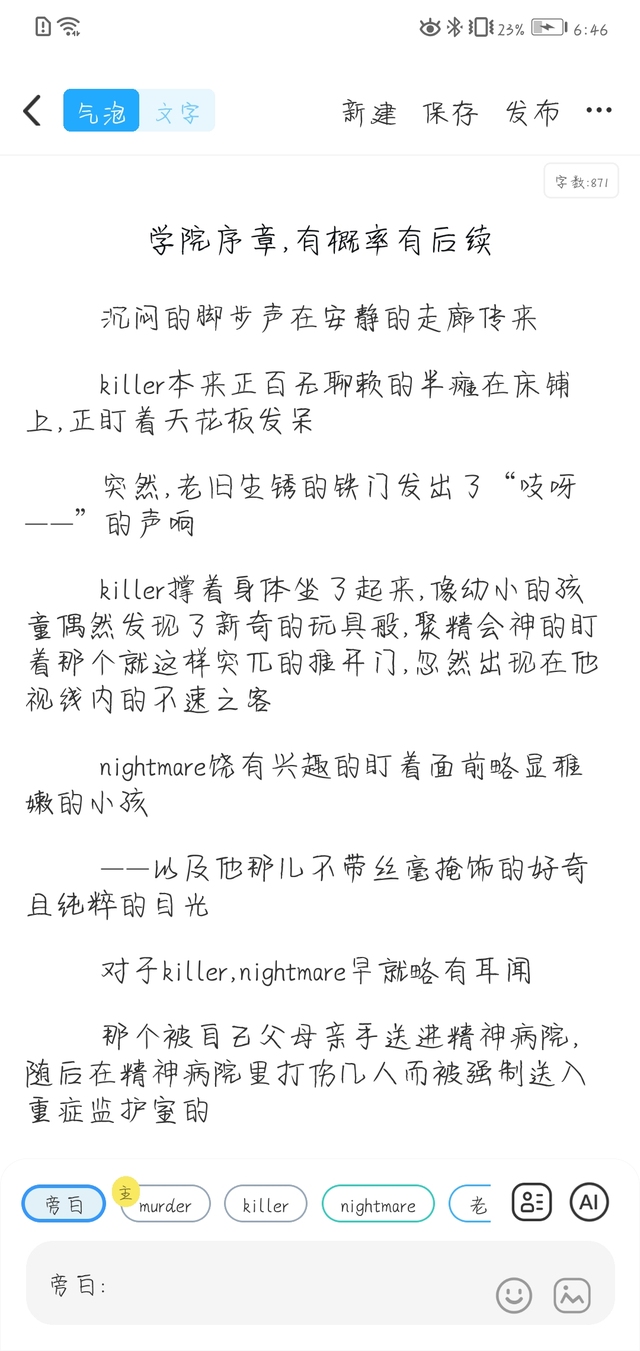 23% 6:46
气泡 文字 新建 保存 发布 ···
字数:871
学院序章,有概率有后续
沉闷的脚步声在安静的走廊传来
killer本来正百无聊赖的半瘫在床铺
上,正盯着天花板发呆
突然,老旧生锈的铁门发出了“吱呀
——”的声响
killer撑着身体坐了起来,像幼小的孩
童偶然发现了新奇的玩具般,聚精会神的盯
着那个就这样突兀的推开门,忽然出现在他
视线内的不速之客
nightmare饶有兴趣的盯着面前略显稚
嫩的小孩
——以及他那儿不带丝毫掩饰的好奇
且纯粹的目光
对于killer,nightmare早就略有耳闻
那个被自己父母亲手送进精神病院,
随后在精神病院里打伤几人而被强制送入
重症监护室的
旁白 主 murder killer nightmare 老 AI
旁白: